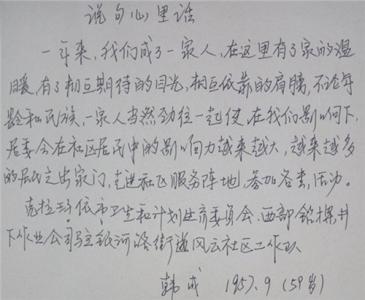 说句心里话
一年来，我们成了一家人，在这里有了家的温
暖，有了相互期待的目光，相互依靠的肩膀，不论年
龄和民族，一家人当然劲往一起使，在我们影响下，
居委会在社区居民中的影响力越来越大，越来越多
的居民走出家门，走进社区服务阵地，参加各类活动。
克拉玛依市卫生和计划生育委员会、西部钻探井
下作业公司驻银河路街道风云社区工作队
韩成 1957.9（59岁）